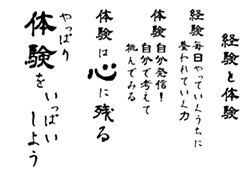 経験と体験
経験 毎日やっていくうちに
養われていく力
体験 自分発信!
自分で考えて
挑んでみる
体験は心に残る
やっぱり
体験をいっぱい
しよう